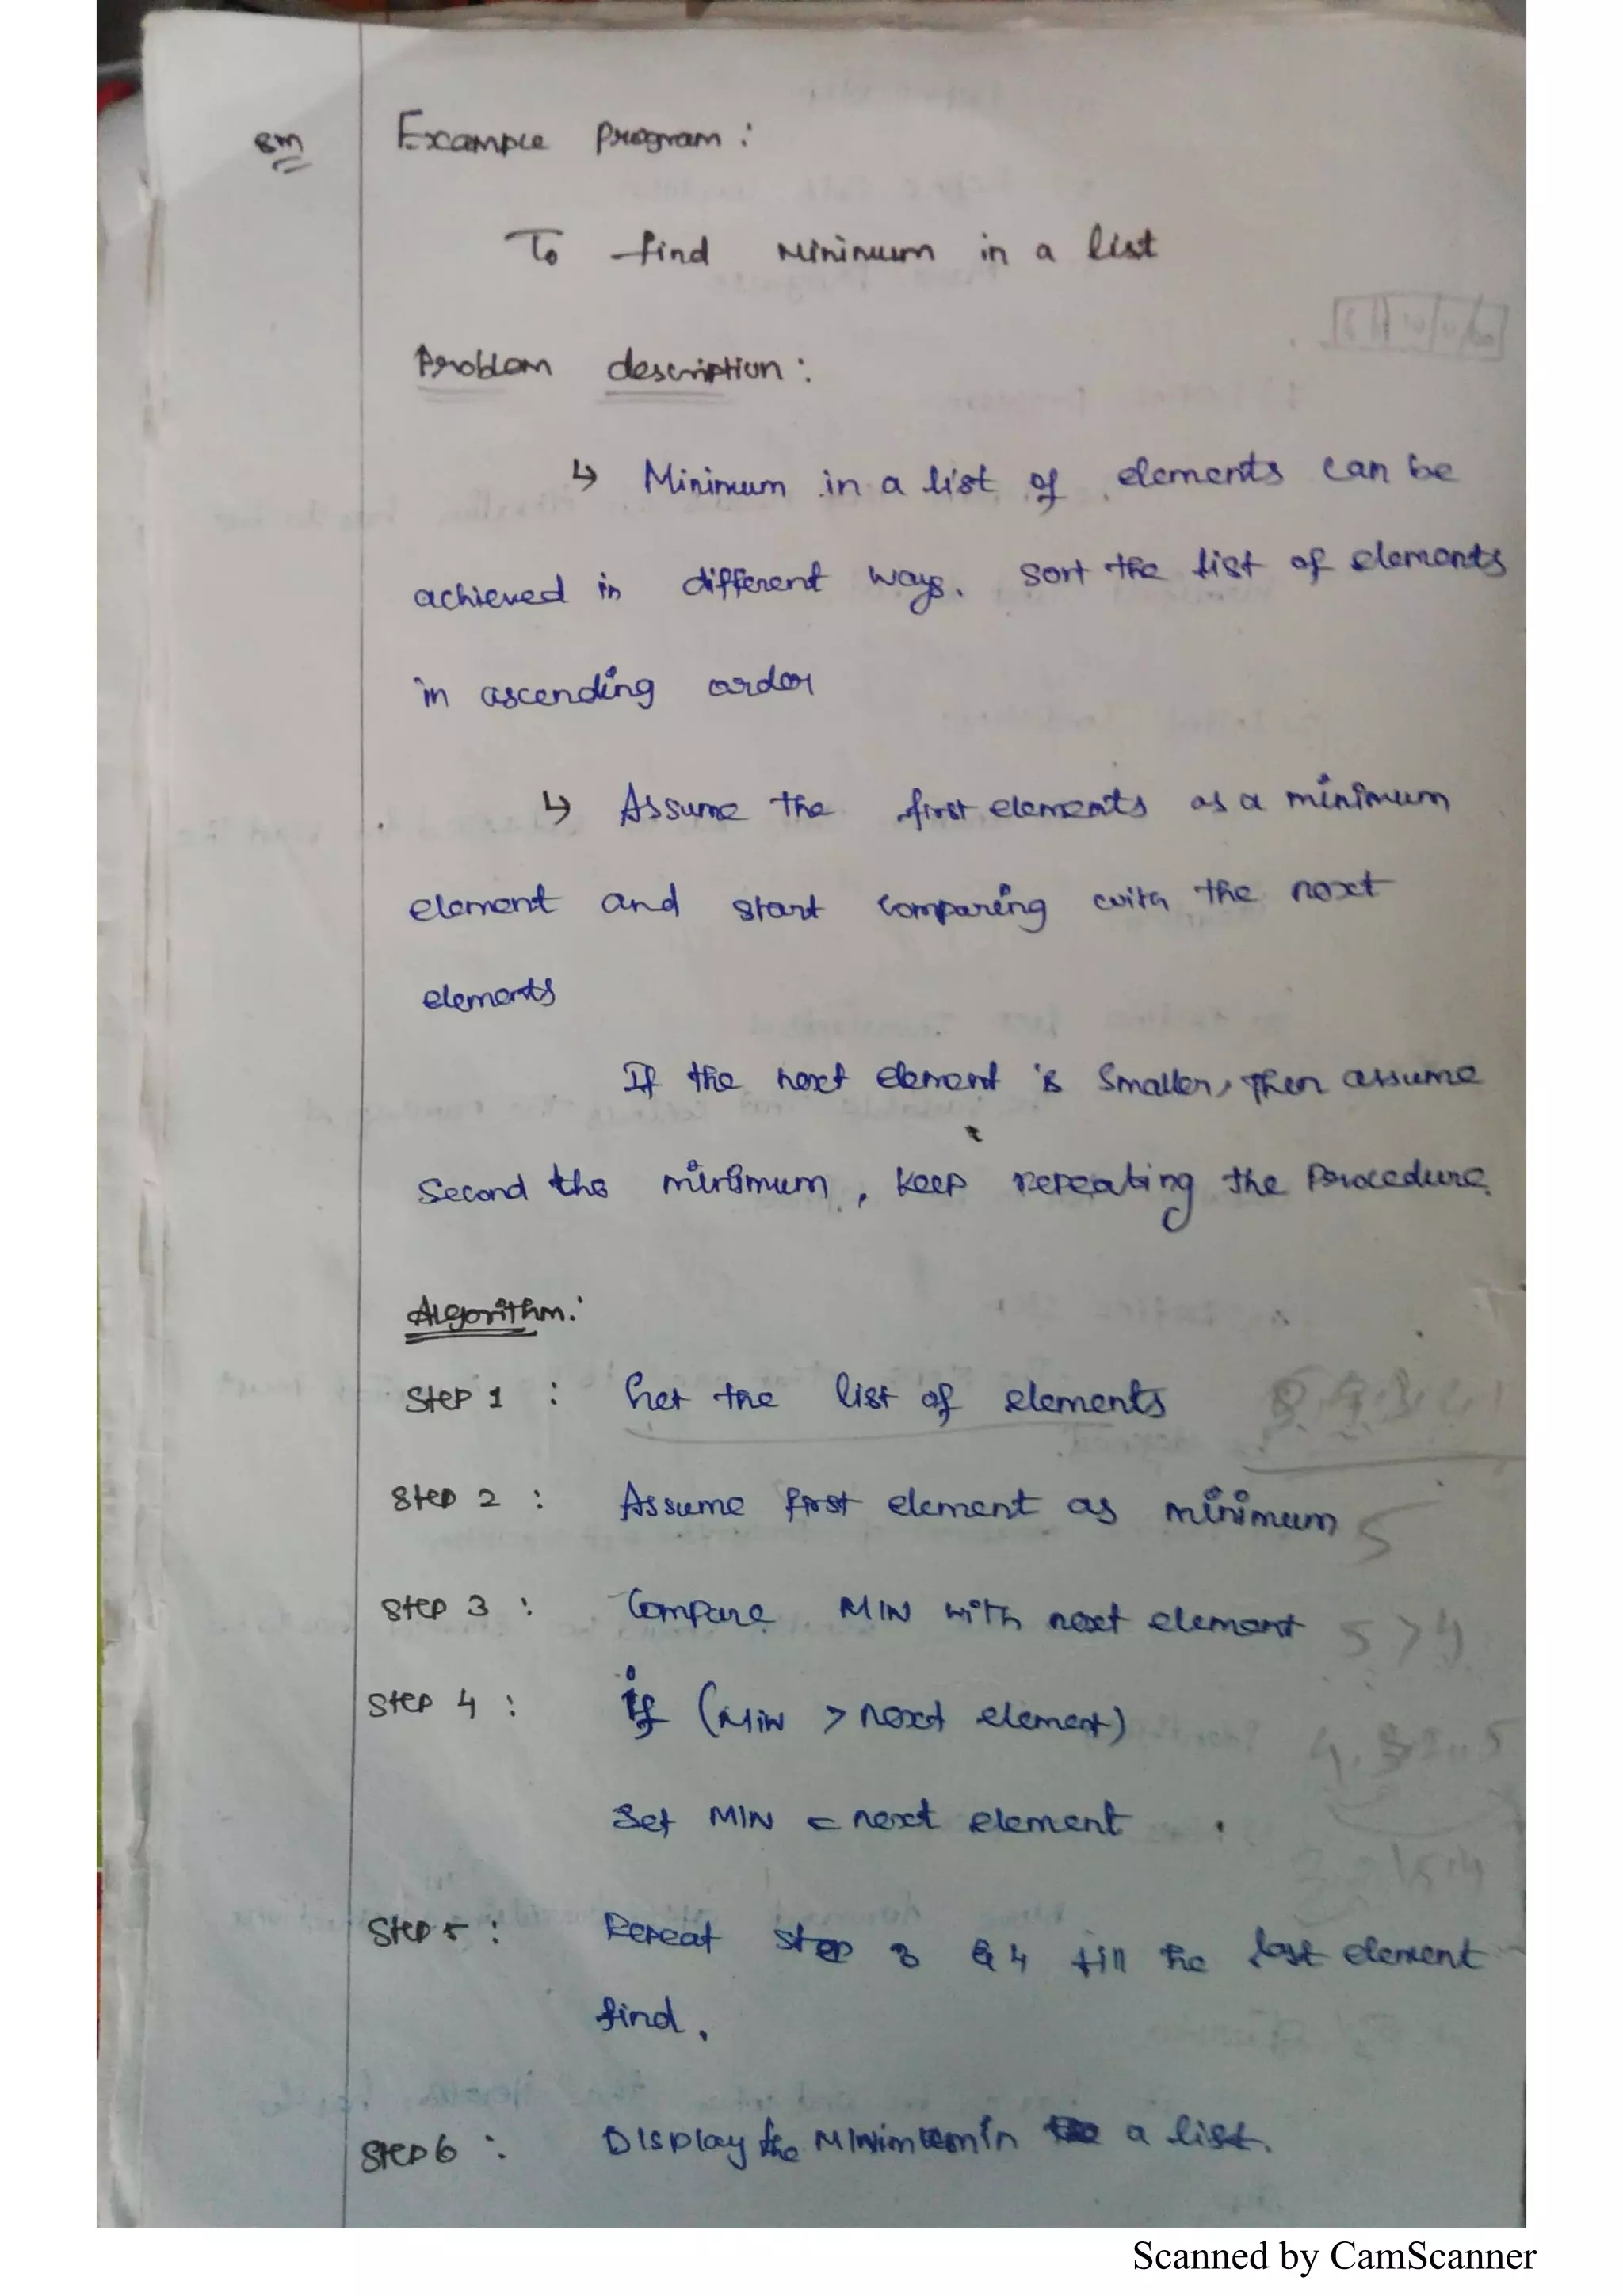 8m Example program:
To find Minimum in a list
Problem description:
↳ Minimum in a list of elements can be
achieved in different ways. Sort the list of elements
in ascending order
↳ Assume the first elements as a minimum
element and start comparing with the next
elements
If the next element is smaller, then assume
second the minimum, keep repeating the Procedure.
Algorithm:
Step 1 : Get the list of elements
Step 2 : Assume first element as minimum 5
Step 3 : Compare MIN with next element 5 > 4
Step 4 : if (MIN > next element)
Set MIN = next element
Step 5 : Repeat step 3 & 4 till the last element
find.
Step 6 : Display the Minimum in a list.
Scanned by CamScanner